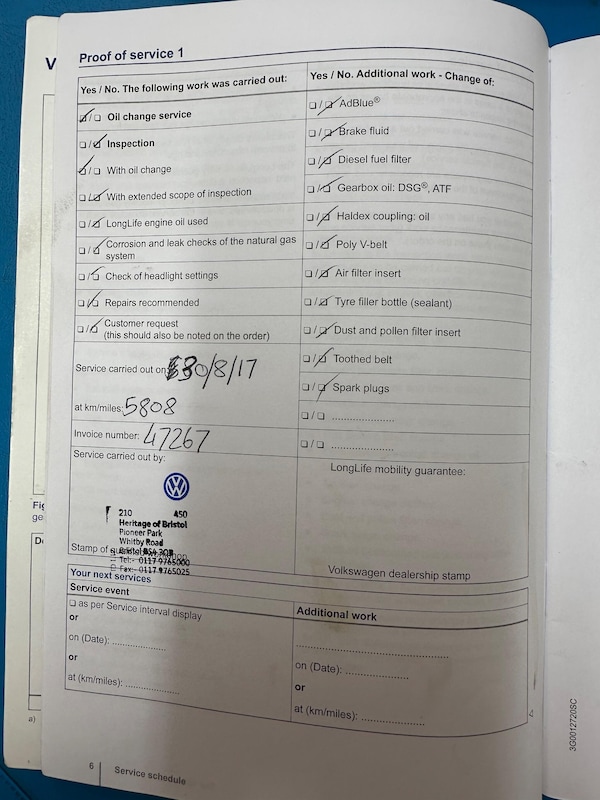 V
Proof of service 1
Yes / No. The following work was carried out:
☑/☐ Oil change service
☐/☑ Inspection
☑/☐ With oil change
☐/☑ With extended scope of inspection
☐/☑ LongLife engine oil used
☐/☑ Corrosion and leak checks of the natural gas
system
☐/☑ Check of headlight settings
☐/☑ Repairs recommended
☐/☑ Customer request
(this should also be noted on the order)
Service carried out on: 30/8/17
at km/miles: 5808
Invoice number: 47267
Service carried out by:
210 450
Heritage of Bristol
Pioneer Park
Whitby Road
Bristol BS4 3QB
Tel:- 0117 9765000
Fax:- 0117 9765025
Stamp of
Yes / No. Additional work - Change of:
☐/☑ AdBlue®
☐/☑ Brake fluid
☐/☑ Diesel fuel filter
☐/☑ Gearbox oil: DSG®, ATF
☐/☑ Haldex coupling: oil
☐/☑ Poly V-belt
☐/☑ Air filter insert
☐/☑ Tyre filler bottle (sealant)
☐/☑ Dust and pollen filter insert
☐/☑ Toothed belt
☐/☑ Spark plugs
☐/☐ ....................
☐/☐ ....................
LongLife mobility guarantee:
Volkswagen dealership stamp
Your next services
Service event
☐ as per Service interval display
or
on (Date): .................
or
at (km/miles): .................
Additional work
................................................
on (Date): ....................
or
at (km/miles): ....................
6 Service schedule
Fig
ge
De
a)
3G0012720SC